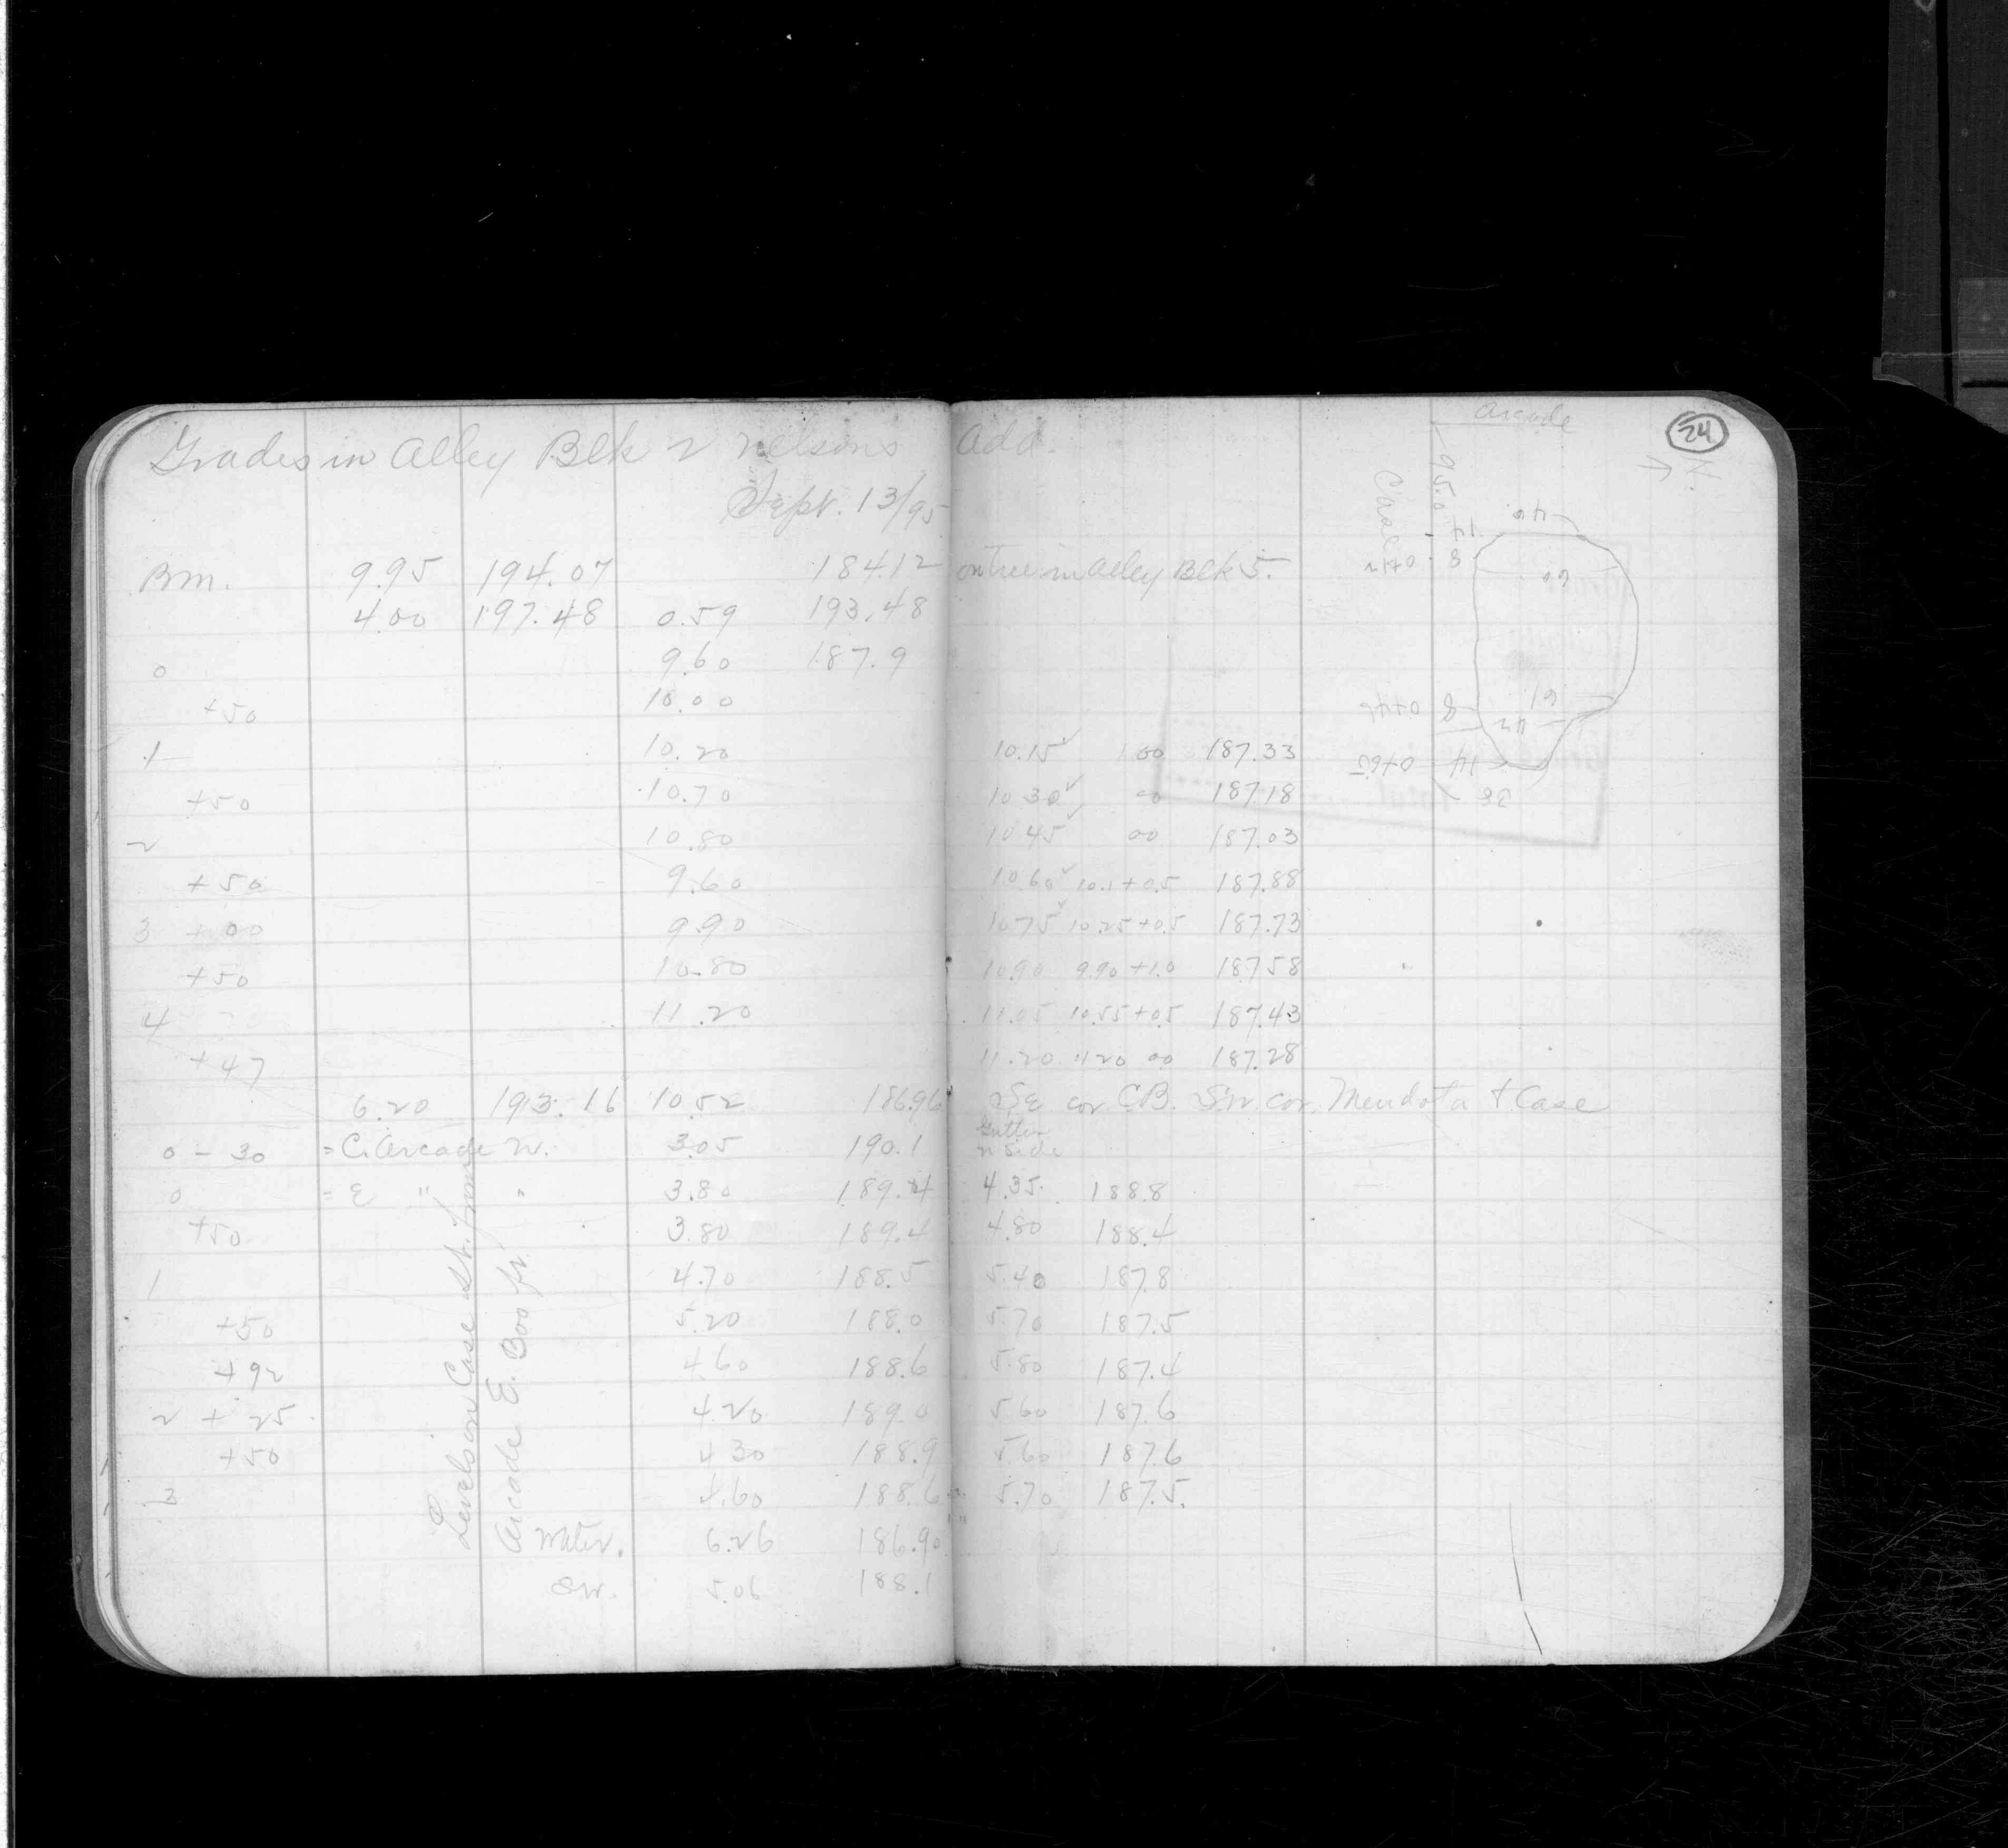 Grades in Alley Blk 2 Nelsons Add.
Sept. 13/95
24
Arcade
N.
Case
95.0
40
14
8 0+12
60
61
8 0+46
42
14 0+65
38
Bm. 9.95 194.07 184.12 on tree in alley Blk 5.
4.00 197.48 0.59 193.48
0 9.60 187.9
+50 10.00
1 10.20 10.15✓ 1 00 187.33
+50 10.70 10 30✓ 00 187.18
2 10.80 10 45✓ 00 187.03
+50 9.60 10.60✓ 10.1+0.5 187.88
3 +00 9.90 10.75✓ 10.25+0.5 187.73
+50 10.80 10.90 9.90+1.0 187.58
4 11.20 11.05 10.55+0.5 187.43
+47 11.20 11 20 00 187.28
6.20 193.16 10.52 186.96 SE cor C.B. SW cor. Mendota + Case
Gutter
0-30 = C. Arcade W. 3.05 190.1 N Side
0 = E " " 3.80 189.4 4.35 188.8
+50 3.80 189.4 4.80 188.4
1 4.70 188.5 5.40 187.8
+50 5.20 188.0 5.70 187.5
+92 4.60 188.6 5.80 187.4
2 + 25 4.20 189.0 5.60 187.6
+50 4 30 188.9 5.60 187.6
3 4.60 188.6 5.70 187.5.
Water. 6.26 186.90
SW. 5.06 188.1
Levels on Case St. from
Arcade E. 300 ft.